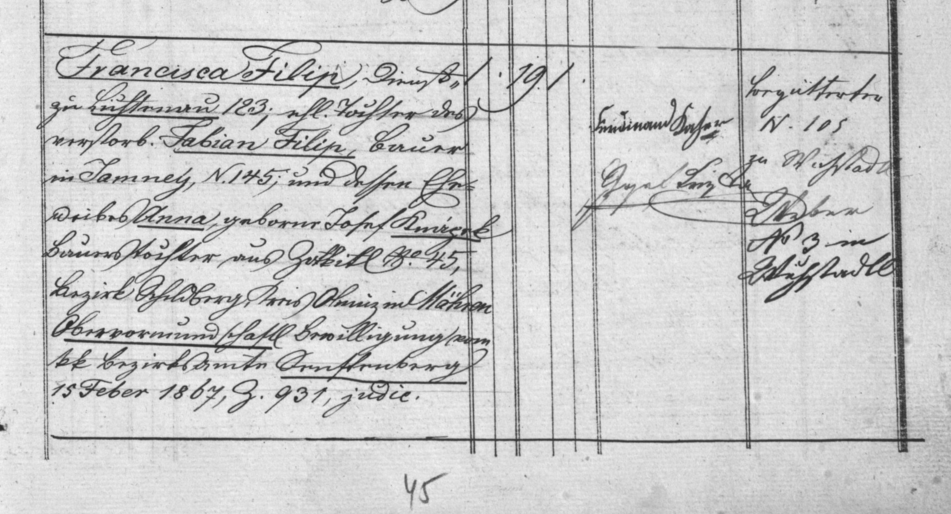 Francisca Filip, Dienst-
zu Lichtenau 123; ehl. Tochter des
verstorb. Fabian Filip, Bauer
in Jamney, N. 145; und dessen Ehe-
weibes Anna, geborne Josef
Bauerstochter aus No 45,
Bezirk Schildberg, Kreis Olmüz in Mähren
Obervormundschaftl Bewilligung vom
kk Bezirksamte Senftenberg
15 Feber 1867, Z. 931, judic.
1. 19. 1.
Ferdinand
begütterter
N. 105
zu Wichstadtl
Weber
No 3 in
Wichstadtl
45